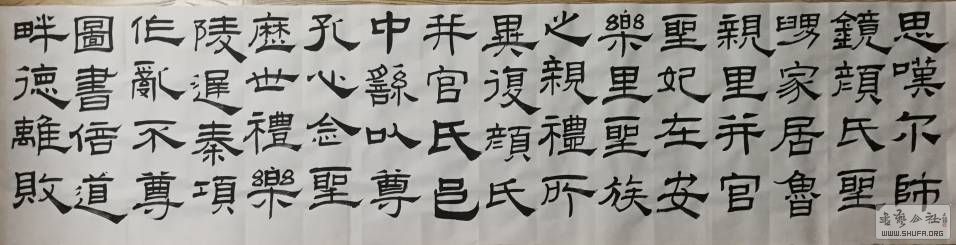 思嘆尔師
鏡顔氏聖
舅家居魯
親里并官
聖妃在安
樂里聖族
之親禮所
異復顔氏
并官氏邑
中繇以尊
孔心念聖
歷世禮樂
陵遲秦項
作亂不尊
圖書倍道
畔德離敗
WWW.SHUFA.ORG